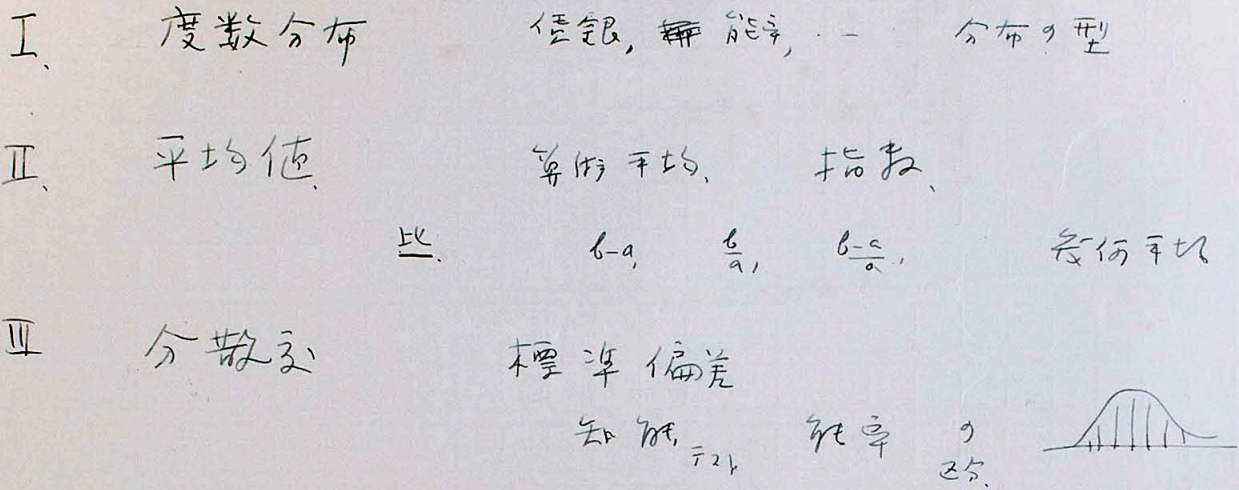 I、 度数分布 賃銀, 能率, ‥ 分布の型
II、 平均値、 算術平均、 指数、
比、 b-a, b/a, b-a/a, 幾何平均
III 分散度 標準偏差
知能テスト 能率の区分、